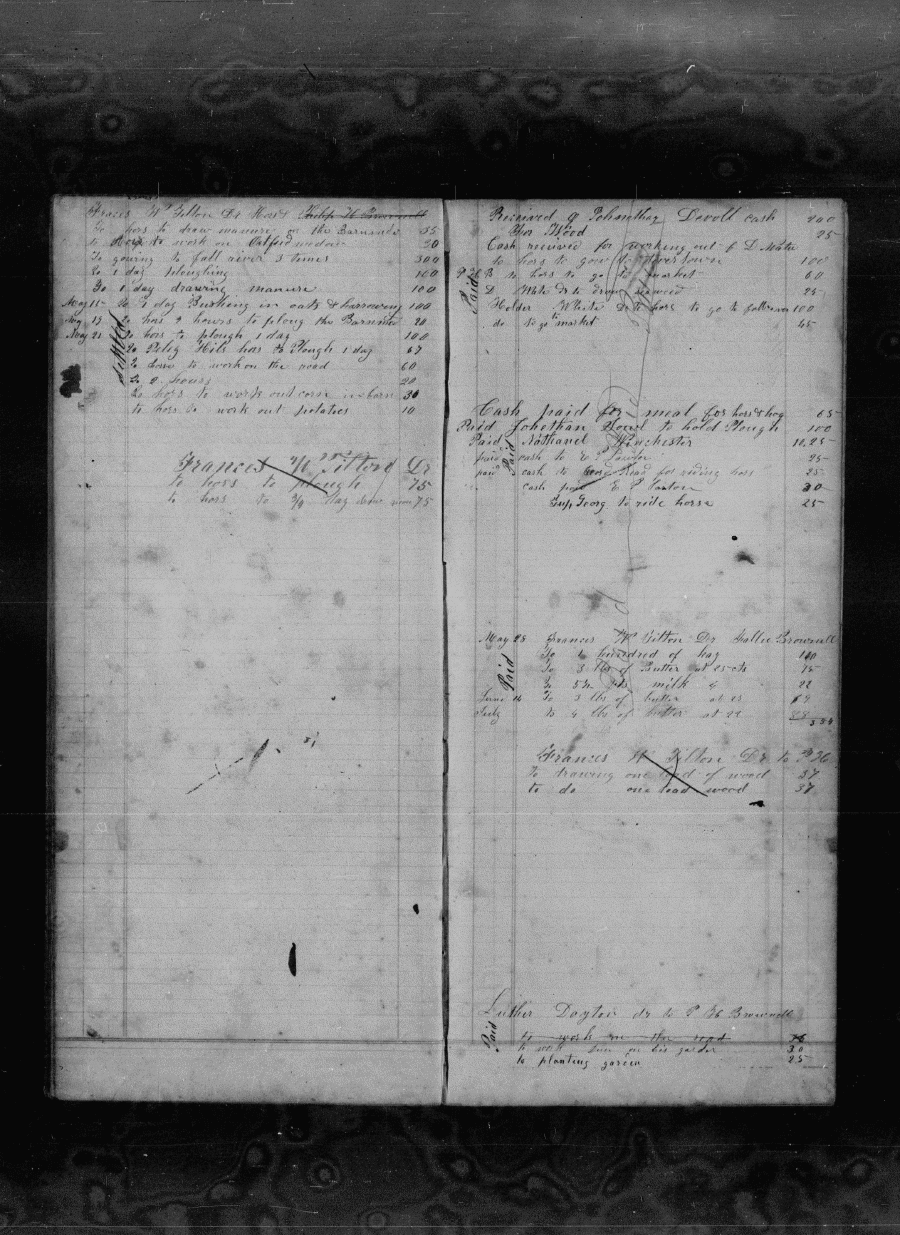 Frances W Tilton Dr Hors & Philip H Brownell
To hors to draw manure on the Barnside 55
to hors to work on 50
To gouing to fall river 3 times 300
To 1 day ploughing 100
To 1 day drawing manure 100
May 15 to 1 day Bushing in oats & harrowing 100
May 19 To hors 2 hours to plong the Barnside 20
May 21 To hors to plough 1 day 100
To Peleg hors to Plough 1 day 67
To horse to work on the road 60
To 2 hours 20
To hors to work out corn 30
to hors to work out potatoes 10
Settled
Frances W Tilton Dr
to hors to plough 75
to hors to day 75
Received of Devoll cash 200
for Wood 25
Cash received for working out D
to hors to gow to town 100
P H B to hors to go to market 60
D to draw seaweed 25
Holder White Dr to hors to go to fallriver 100
do to go to market 45
Paid
Cash paid for meal for hors & hog 65
Paid Johethan to hold Plough 100
Paid Nathanel Winchester 10,25
paid cash to E P 25
paid cash to for riding hors 25
cash paid E P 30
Georg to ride horse 25
Paid
May 28 Frances W Tilton Dr Hallie Brownell
To 1 hundred of hay 100
To 3 lbs of Butter at 25 cts 75
To milk 4 22
June To 3 lbs of butter at 23 69
July to 4 lbs of butter at 22
Paid
Frances W Tilton Dr to P H
To drawing one load of wood 37
to do one load wood 37
Luther Dayton dr to P H Brownell
to work on the road
to work on his garden 30
to planting garden 25
Paid